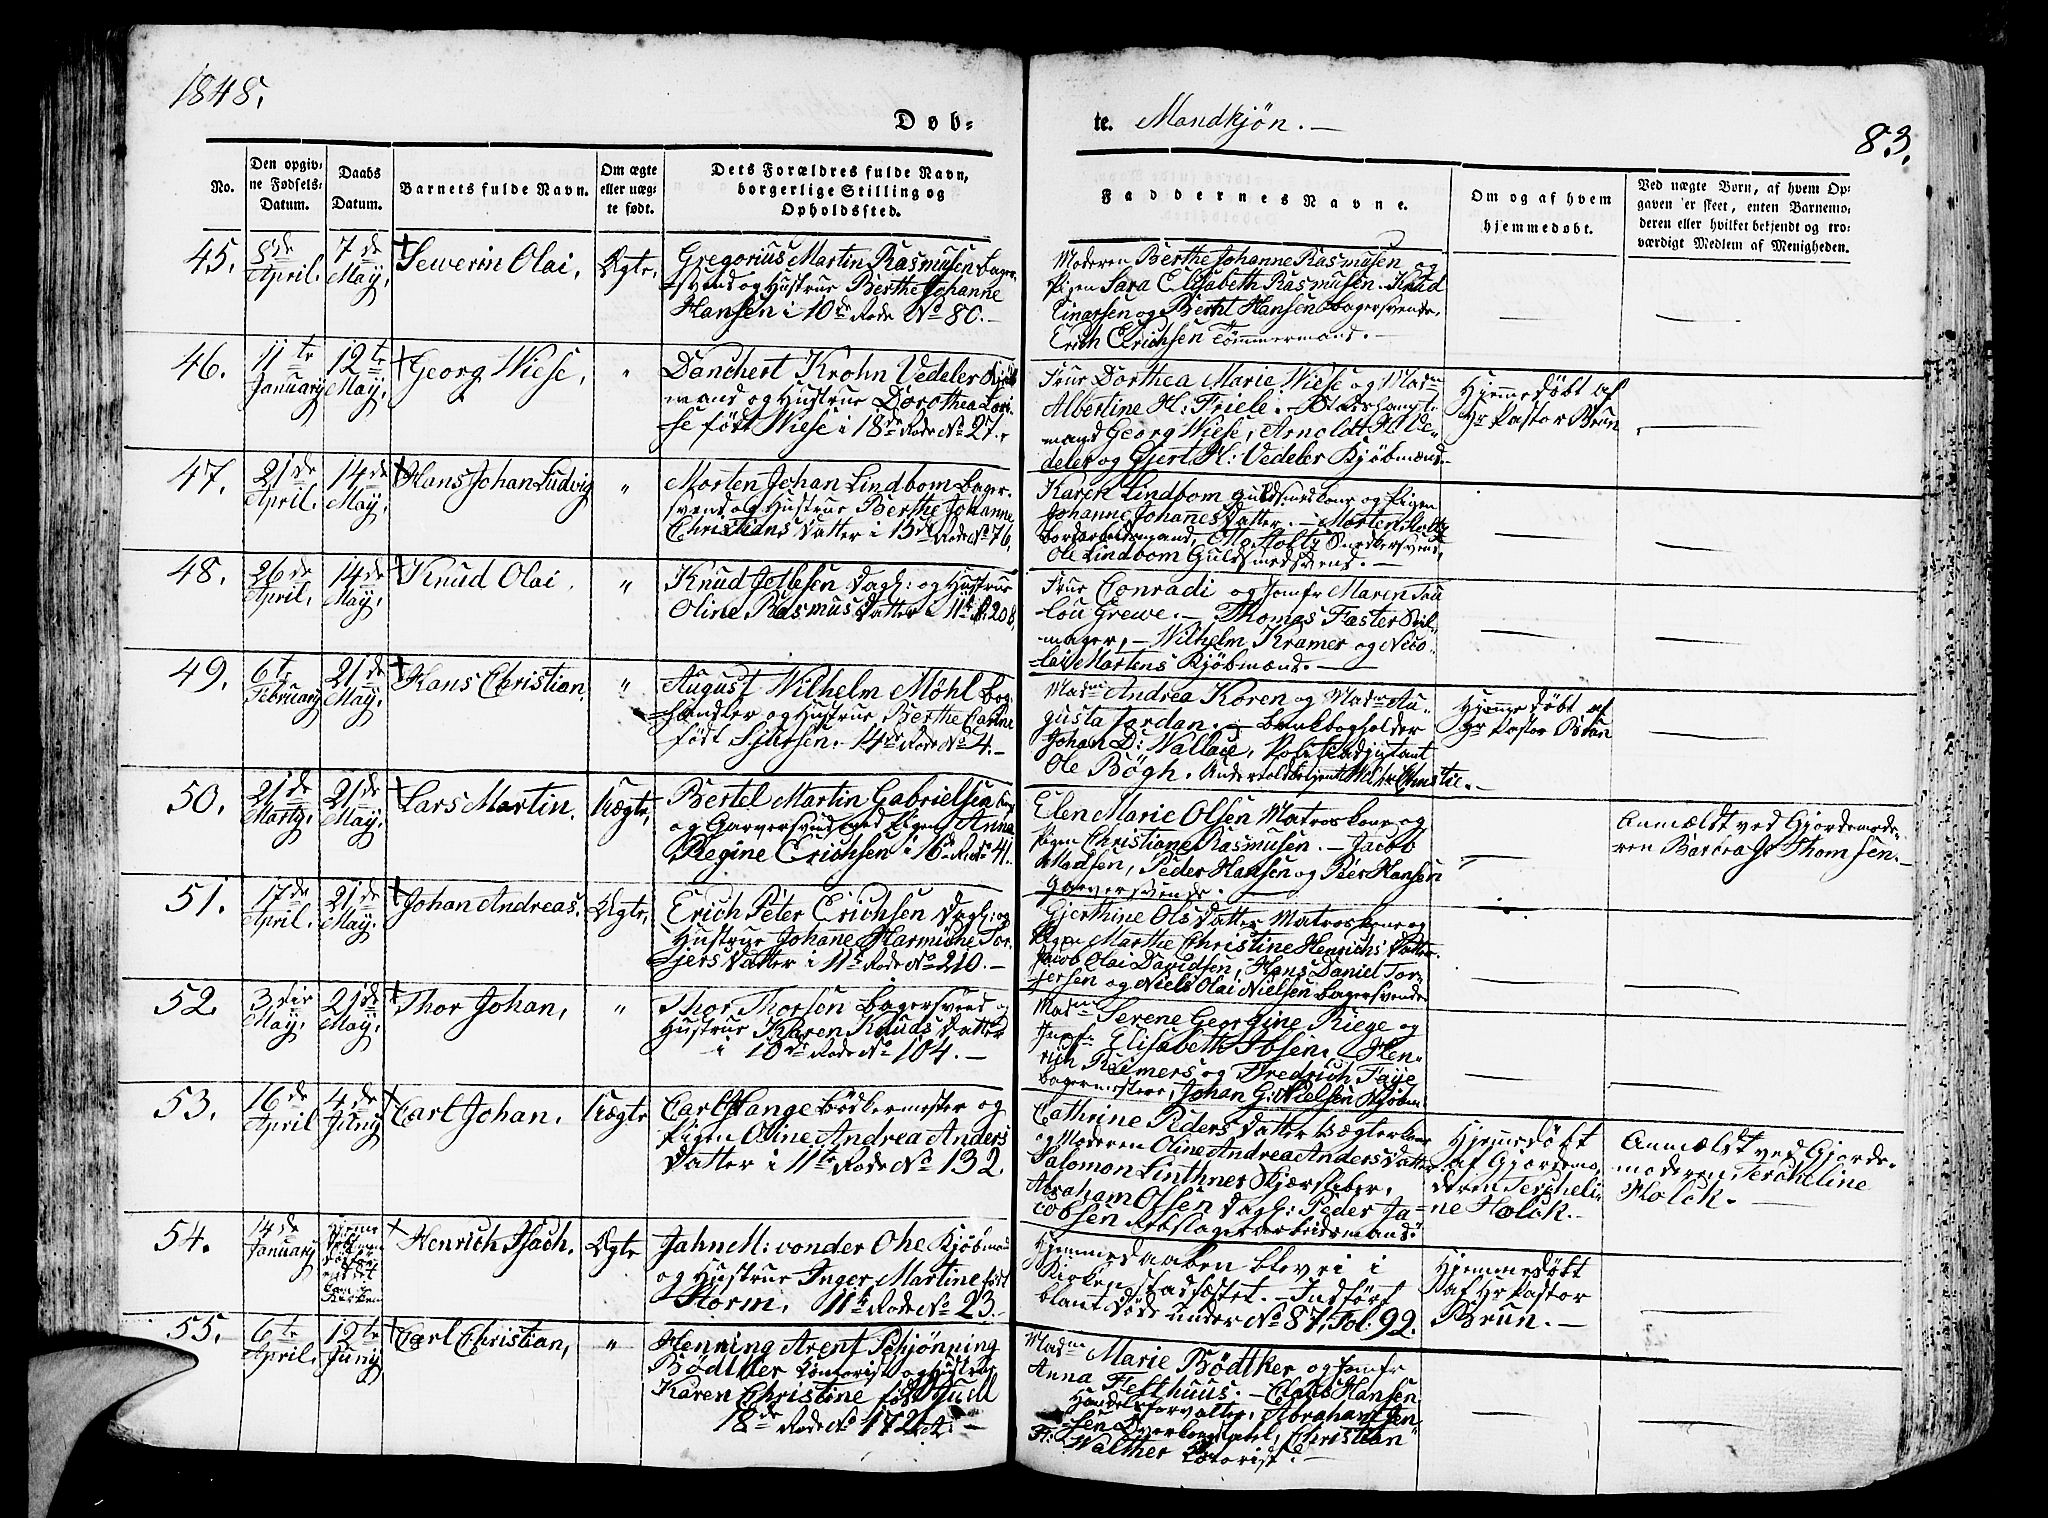 1848.
Døb-
te. Mandkjøn. —
83.
No.
Den opgiv-
ne Fødsels-
Datum.
Daabs
Datum.
Barnets fulde Navn.
Om ægte
eller uæg-
te født.
Dets Forældres fulde Navn,
borgerlige Stilling og
Opholdssted.
Faddernes Navne.
Om og af hvem
hjemmedøbt.
Ved uægte Børn, af hvem Op-
gaven er skeet, enten Barnemo-
deren eller hvilket bekjendt og tro-
værdigt Medlem af Menigheden.
45.
8de
April.
7de
May.
Sewerin Olai,
Ægte,
Gregorius Martin Rasmusen bager-
svend og Hustrue Berthe Johanne
Hansen i 10de Rode No 80. —
Moderen Berthe Johanne Rasmusen og
Pigen Sara Elisabeth Rasmusen. Knud
Einarsen og Berthl Hansen bagersvende,
Erich Erichsen Tømmermand. —
46.
11te
January
12te
May,
Georg Wiese,
"
Danchert Krohn Vedeler Kjøb-
mand og Hustrue Dorothea Lovi-
se født Wiese i 18de Rode No 27.
Frue Dorthea Marie Wiese og Madm
Albertine H: Friele. — Stadshaupt-
mand Georg Wiese, Arnoldt H. Ve-
deler og Gjert H: Vedeler Kjøbmænd. —
Hjemmedøbt af
Hr Pastor Brun
47.
21de
April.
14de
May,
Hans Johan Ludvig
"
Morten Johan Lindbom bager-
svend og Hustrue Berthe Johanne
Christians Datter i 15de Rode No 76,
Karen Lindbom Guldsmedkone og Pigen
Johanne Johannes Datter. — Morten Holtz
Ole Holtz Snedkersvend,
Ole Lindbom Guldsmedsvend. —
48.
26de
April,
14de
May,
Knud Olai.
"
Knud Jetlesen Dagl: og Hustrue
Oline Rasmus Datter i 11te R: 208,
Frue Conradi og Jomfr Maren
Lou Grewe. — Thomas Faster Seil-
mager, — Wilhelm Kramer og Nico-
lai Martens Kjøbmænd. —
49.
6te
February
21de
May,
Hans Christian.
"
August Wilhelm Möhl Bog-
handler og Hustrue Berthe Carine
født Sjursen. 14de Rode No 4. —
Madm Andrea Koren og Madm Au-
gusta Jordan. — Bankbogholder
Johan D: Wallace, Politieadjutant
Ole Bøgh. Christie. —
Hjemmedøbt af
Hr Pastor Brun
50.
21de
Marty.
21de
May,
Lars Martin.
Uægte,
Bertel Martin Gabrielsen
og Garversvend med Pigen Anna
Regine Erichsen i 16de R. No 41.
Elen Marie Olsen Matroskone og
Pigen Christiane Rasmusen. — Jacob
Madsen, Peder Hansen og Peer Hansen
Garversvende. —
Anmældt ved Gjordemode-
ren Barbra Thomsen. —
51.
17de
April.
21de
May.
Johan Andreas.
Ægte,
Erich Peter Erichsen Dagl: og
Hustrue Johanne Harmiche Tor-
gers Datter i 11te Rode No 210. —
Gjerthine Ols Datter Matroskone og
Pigen Marthe Christine Henrichs Datter
Jacob Olai Davidsen, Hans Daniel Tor-
gersen og Niels Olai Nielsen bagersvende
52.
3die
May.
21de
May,
Thor Johan,
"
Thor Thorsen bagersvend og
Hustrue Karen Knuds Datter
i 10de Rode No 104. —
Madm Serene Georgine Riege og
Jomfr Elisabeth Ibsen. Hen-
rich Reimers og Fredrich Faye
bagermestere, Johan G: Nielsen Kjøbm.
53.
16de
April
4de
Juny
Carl Johan.
Uægte
Carl Hange bødkermester og
Pigen Oline Andrea Anders
Datter i 11te Rode No 132.
Cathrine Peders Datter Vægterkone
og Moderen Oline Andrea Anders Datter
Salomon Linthner Skjærsliber,
Abraham Olsen Dagl: Peder Ja-
cobsen Rebslagerarbeidsmand.
Hjemmedøbt
af Gjordemo-
deren Tercheli-
ne Holck. —
Anmældt ved Gjorde-
moderen Tercheline
Holck. —
54.
14de
January
Henrich Isach.
Ægte
Jahn M: von der Ohe Kjøbmand
og Hustrue Inger Martine født
Storm, 11te Rode No 23. —
Hjemmedaaben blev ei i
Kirken stadfæstet. — Indført
blant Døde under No 87, Fol: 92.
Hjemmedøbt
af Hr Pastor
Brun. —
55.
6te
April,
12te
Juny
Carl Christian,
"
Henning Arent Schjønning
Bødtker Contorist og Hustrue
Karen Christine født Juell
18de Rode No 172 —
Madm Marie Bødtker og Jomfr
Anna Festhuus. — Claus Hansen
Handelsforvalter, Abraham Jen-
sen Christian
Fr: Walther Contorist. —